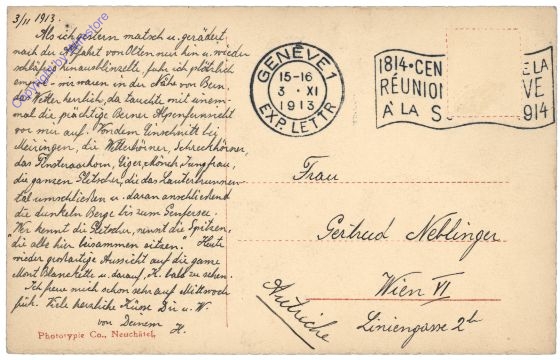 3/11 1913.
Als ich gestern matsch u. gerädert
nach der Abfahrt von Olten nur hin u. wieder
schläfrig hinausblinzelte, fuhr ich plötzlich
empor – wir waren in der Nähe von Bern
das Wetter herrlich, da tauchte mit einem-
mal die prächtige Berner Alpenfernsicht
vor mir auf. Von dem Einschnitt bei
Meiringen, die Wetterhörner, Schreckhörner,
das Finsteraarhorn, Eiger, Mönch, Jungfrau,
die ganzen Gletscher, die das Lauterbrunnen-
tal umschließen u. daran anschließend
die dunkeln Berge bis zum Genfersee.
Wer kennt die Gletscher, nennt die Spitzen,
"die alle hier beisammen sitzen." Heute
wieder großartige Aussicht auf die ganze
Mont Blanc Kette u. darauf, K. bald zu sehen.
Ich freue mich schon sehr auf Mittwoch
früh. Viele herzliche Küsse Dir u. W.
von Deinem H.
Photocopy by
Photoypie Co., Neuchâtel.
GENÈVE 1
15-16
3 · XI
1913
EXP. LETTR.
1814 · CEN E LA
RÉUNION VE
À LA S 1914
Frau
Gertrud Neblinger
Wien VI
Liniengasse 2b
Autriche